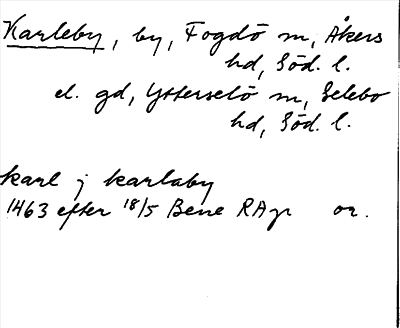 Karleby, by, Fogdö sn, Åkers
hd, Söd. l.
el. gd, Ytterselö sn, Selebo
hd, Söd. l.
karl j karlaby
1463 efter 18/5 Bene RApr or.